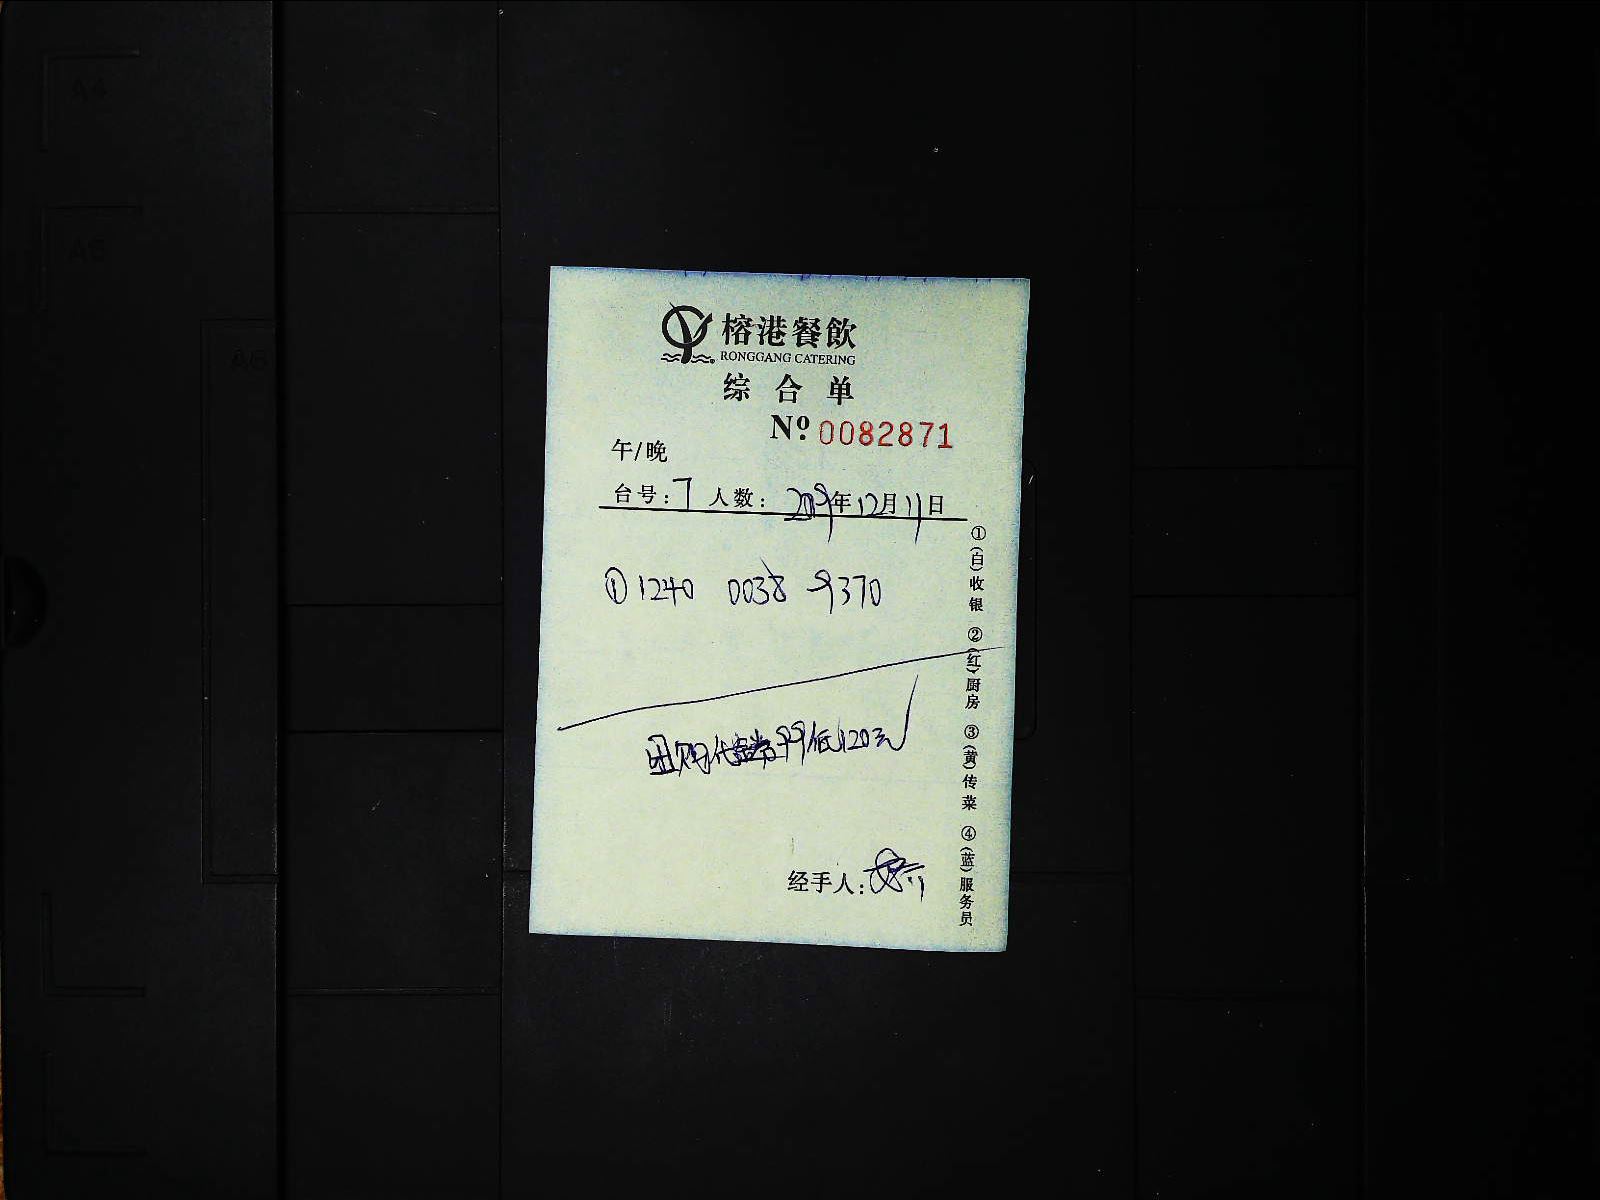 榕港餐飲
RONGGANG CATERING
综合单
Nº 0082871
午/晚
台号: 7 人数: 2019年12月11日
① 1240 0038 9370
团购代金券99低120元
经手人:
①(白)收银 ②(红)厨房 ③(黄)传菜 ④(蓝)服务员
A4
A5
A6